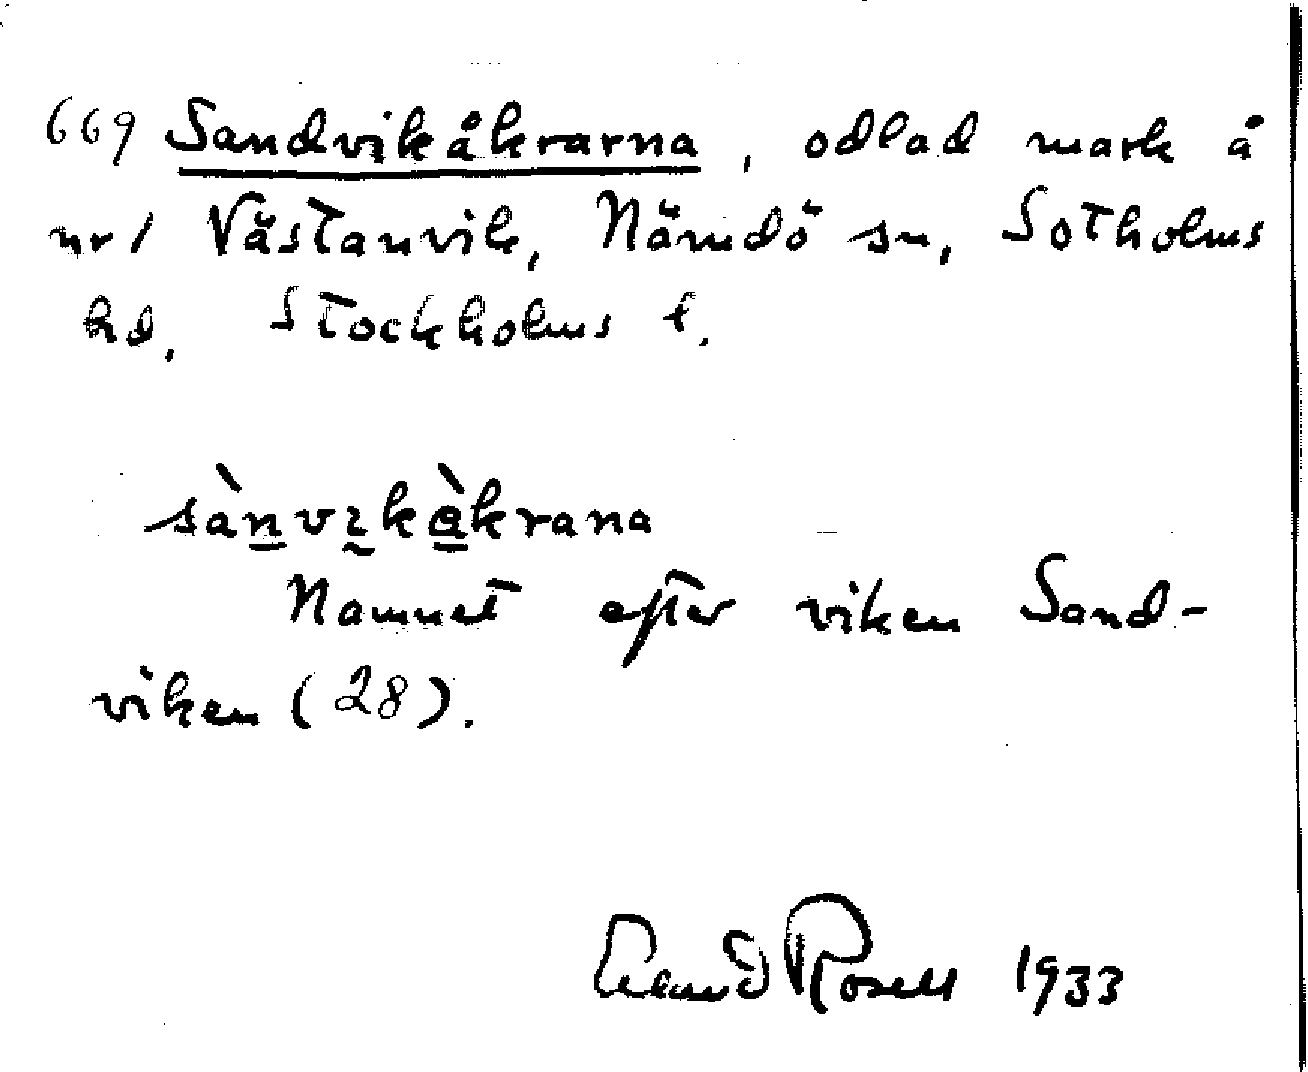 669 Sandvikåkrarna, odlad mark å
nr 1 Västanvik, Nämdö sn, Sotholms
hd. Stockholms l.
sànvɩkàkrana
Namnet efter viken Sand-
viken (28).
Rosell 1933